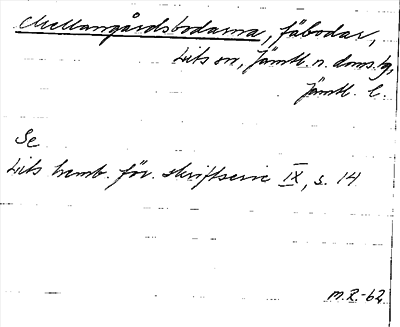 Mellangårdsbodarna, fäbodar,
Lits sn, Jämtl. n. doms:g,
Jämtl. l.
Se
Lits hemb. för. skriftserie IX, s. 14
M.R.-62